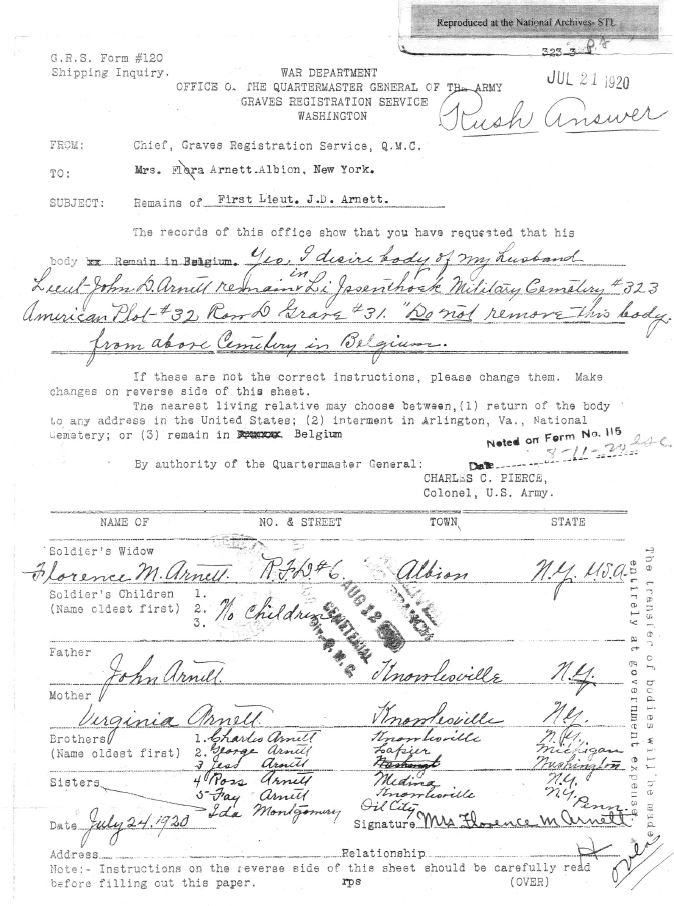 Reproduced at the National Archives- STL
G.R.S. Form #120
323-3 P.A
Shipping Inquiry.
WAR DEPARTMENT
JUL 21 1920
OFFICE O. THE QUARTERMASTER GENERAL OF THE ARMY
GRAVES REGISTRATION SERVICE
WASHINGTON
Rush Answer
FROM: Chief, Graves Registration Service, Q.M.C.
TO: Mrs. Flora Arnett.Albion, New York.
SUBJECT: Remains of First Lieut. J.D. Arnett.
The records of this office show that you have requested that his
body xx Remain in Belgium. Yes, I desire body of my husband
Lieut John D. Arnett remain in Li Jssenthoek Military Cemetery #323
American Plot #32 Row D Grave #31. "Do not remove this body.
from above Cemetery in Belgium.
If these are not the correct instructions, please change them. Make
changes on reverse side of this sheet.
The nearest living relative may choose between,(1) return of the body
to any address in the United States; (2) interment in Arlington, Va., National
Cemetery; or (3) remain in Belgium
Noted on Form No. 115
Date 8-11-20
By authority of the Quartermaster General:
CHARLES C. PIERCE,
Colonel, U.S. Army.
NAME OF NO. & STREET TOWN STATE
Soldier's Widow
Florence M. Arnett. R.F.D #6 Albion N.Y. U.S.A.
Soldier's Children 1.
(Name oldest first) 2. No Children
3.
RECEIVED
AUG 12 1920
CEMETERIAL
Div. Q. M. C.
Father
John Arnett Knowlesville N.Y.
Mother
Virginia Arnett Knowlesville N.Y.
Brothers 1. Charles Arnett Knowlesville N.Y.
(Name oldest first) 2. George Arnett Lapeer Michigan
3 Jess Arnett Washington
Sisters 4 Ross Arnett Medina N.Y.
5 Fay Arnett Knowlesville N.Y.
Ida Montgomery Oil City Penn.
Date July 24, 1920 Signature Mrs Florence M Arnett
Address Relationship
Note:- Instructions on the reverse side of this sheet should be carefully read
before filling out this paper. rps (OVER)
over
The transfer of bodies will be made
entirely at government expense